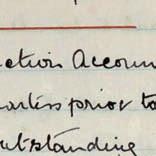 ction Accoun
arties prior to
utstanding